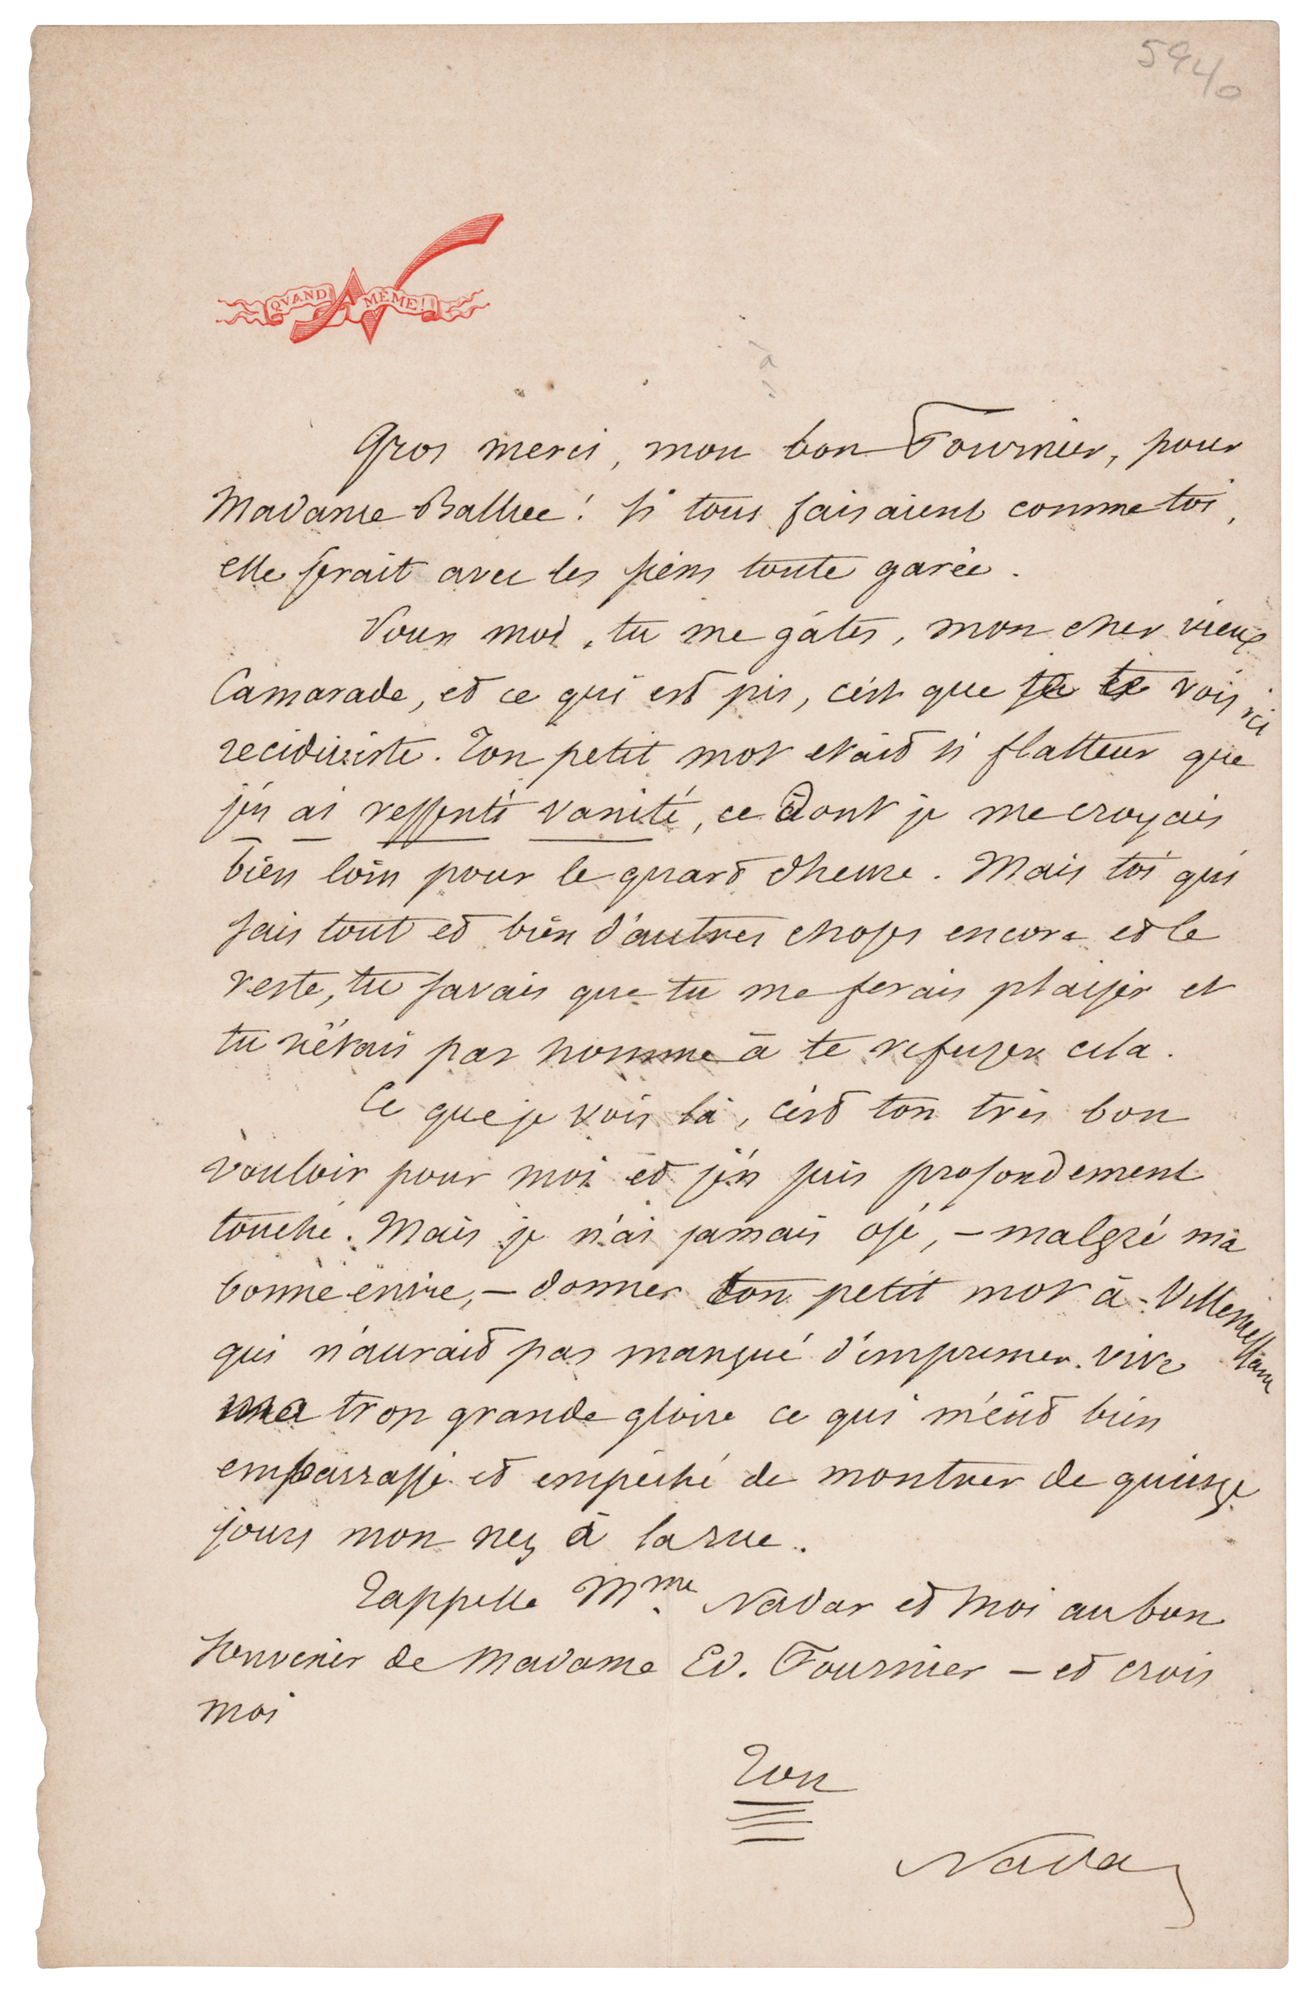 5940
QVAND N MÊME!!
Gros merci, mon bon Fournier, pour
Madame ! Si tous faisaient comme toi,
elle serait avec les siens toute garée.
Pour moi, tu me gâtes, mon cher vieux
Camarade, et ce qui est pis, c'est que je te vois ici
recidiviste. Ton petit mot etait si flatteur que
j'en ai ressenti vanité, ce dont je me croyais
bien loin pour le quard d'heure. Mais toi qui
sais tout et bien d'autres choses encore et le
reste, tu savais que tu me ferais plaisir et
tu n'étais pas homme à te refuser cela.
Ce que je vois là, c'est ton très bon
vouloir pour moi et j'en suis profondement
touché. Mais je n'ai jamais osé, – malgré ma
bonne envie, – donner ton petit mot à Villemessant
qui n'aurait pas manqué d'imprimer. vive
ma trop grande gloire ce qui m'eût bien
embarrassé et empêché de montrer de quinze
jours mon nez à la rue.
Rappelle Mme Nadar et moi au bon
souvenir de Madame Ed. Fournier – et crois
moi
Ton
Nadar